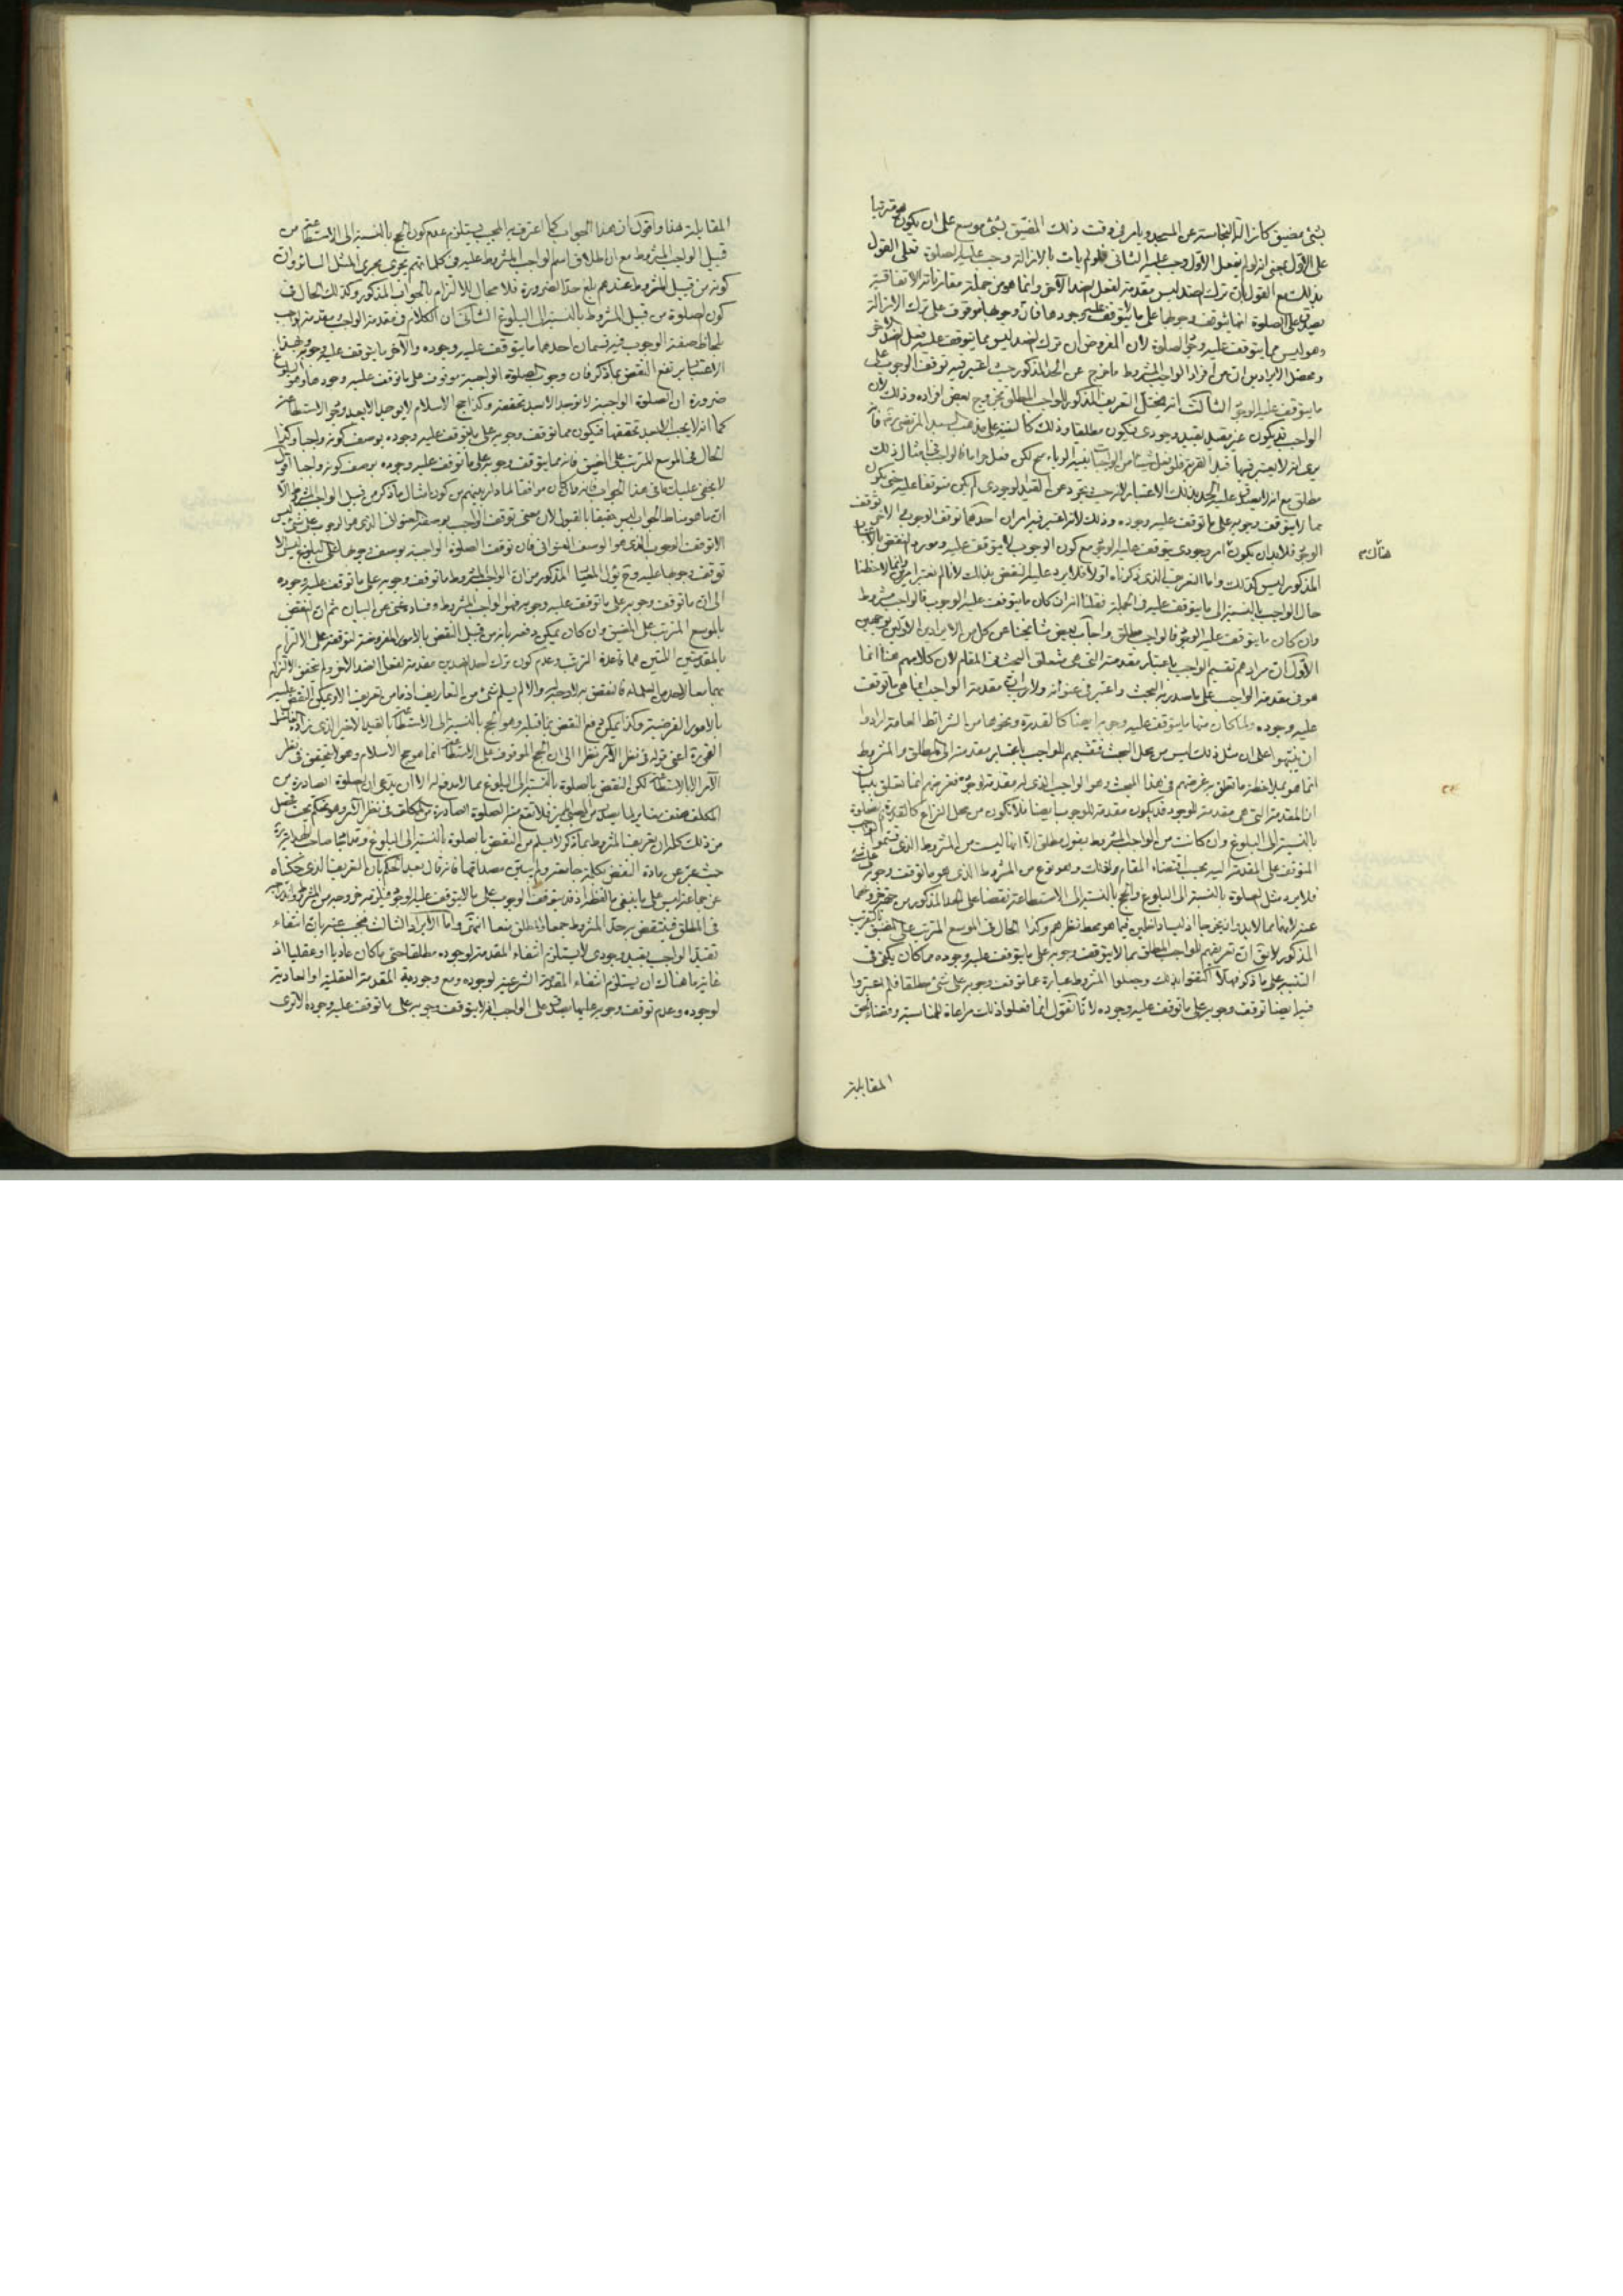 بشئ مضيق كازالة النجاسة عن المسجد ويامر في وقت ذلك المضيق بشئ موسع على ان يكون مترتبا
على الاول بمعنى انه لو لم يفعل الاول وجب عليه الثانى فلو لم يات بالازالة وجب عليه الصلوة فعلى القول
بذلك مع القول بان ترك الضد ليس مقدمة لفعل الضد الآخر وانما هو من جملة مقارناته الاتفاقية
يصدق على الصلوة انما يتوقف وجوبها على ما لا يتوقف عليه وجودها فان وجوبها موقوف على ترك الازالة
وهو ليس مما يتوقف عليه وجود الصلوة لان المفروض ان ترك الضد ليس مما يتوقف عليه فعل الضد الآخر
ومحصل الايرادين ان من افراد الواجب المشروط ما خرج عن الحد المذكور حيث اعتبر فيه توقف الوجوب على
ما يتوقف عليه الوجود الثالث انه يختل التعريف المذكور للواجب المطلق بخروج بعض افراده وذلك لان
الواجب قد يكون غير مقيد بقيد وجودى فيكون مطلقا وذلك كالنية على مذهب السيد المرتضى ره فانه
يرى انه لا يعتبر فيها قصد القربة
مطلق مع انه لا يصدق عليه الحد بذلك الاعتبار لانه حيث تجرد عن القيد الوجودى لم يكن متوقفا عليه حتى يكون
مما لا يتوقف وجوبه على ما توقف عليه وجوده وذلك لانه اعتبر فيه امران احدهما توقف الوجود والآخر توقف
الوجود فلا بد ان يكون امر وجودى يتوقف عليه الوجود مع كون الوجوب لا يتوقف عليه ومورد النقض بالاعتبار
المذكور ليس كذلك واما التعريف الذى ذكرناه اولا فلا يرد عليه النقض بذلك لانا لم نعتبر امرين وانما لاحظنا
حال الواجب بالنسبة الى ما يتوقف عليه في الجملة فقلنا انه ان كان ما يتوقف عليه الوجوب فالواجب مشروط
وان كان ما يتوقف عليه الوجود فالواجب مطلق واجاب بعض مشايخنا عن كل من الايرادين الاولين بوجهين
الاول ان مرادهم تقسيم الواجب باعتبار مقدمته التى هى متعلق البحث في المقام لان كلامهم هنا انما
هو في مقدمة الواجب على ما صدر به البحث واعتبر في عنوانه ولا ريب ان مقدمة الواجب انما هى ما توقف
عليه وجوده ولما كان منها ما يتوقف عليه وجوبه ايضا كالقدرة ونحوها من الشرائط العامة ارادوا
ان ينبهوا على ان مثل ذلك ليس من محل البحث فتقسيمهم للواجب باعتبار مقدمته الى المطلق والمشروط
انما هو بملاحظة ما تعلق به غرضهم في هذا المبحث وهو الواجب الذى له مقدمة وجود فغرضهم انما تعلق ببيان
ان المقدمة التى هى مقدمة للوجود قد يكون مقدمة للوجوب ايضا فلا تكون من محل النزاع كالقدرة فالصلوة
بالنسبة الى البلوغ وان كانت من الواجب المشروط بقول مطلق الا انها ليست من المشروط الذى قسموا الواجب
المتوقف على المقدمة اليه بحسب اقتضاء المقام ولذلك وهو نوع من المشروط الذى هو ما توقف وجوبه على شئ
فلا يرد مثل الصلوة بالنسبة الى البلوغ والحج بالنسبة الى الاستطاعة نقضا على الحد المذكور من جهة خروجهما
عنه لانهما مما لا بد ان يخرجا اذ ليسا داخلين فيما هو محط نظرهم وكذا الحال في الموسع المترتب على المضيق بالتقريب
المذكور لا يقال ان تعريفهم للواجب المطلق بما لا يتوقف وجوبه على ما يتوقف عليه وجوده مما كان يكفى في
التنبيه على ما ذكر فهلا اكتفوا بذلك وجعلوا المشروط عبارة عما توقف وجوبه على شئ مطلقا فلم اعتبروا
فيه ايضا توقف وجوبه على ما توقف عليه وجوده لانا نقول انما فعلوا ذلك مراعاة للمناسبة وقضاء لحق
المقابلة
هناك م
المقابلة هذا واقول ان هذا الجواب كما اعترف به المجيب يستلزم عدم كون الحج بالنسبة الى الاستطاعة من
قبيل الواجب المشروط مع ان اطلاق اسم الواجب المشروط عليه في كلماتهم يجرى مجرى المثل السائر وان
كونه من قبيل المشروط عندهم بلغ حد الضرورة فلا مجال للالتزام بالجواب المذكور وكذلك الحال في
كون الصلوة من قبيل المشروط بالنسبة الى البلوغ الثانى ان الكلام في مقدمة الواجب ومقدمة الواجب
بلحاظ صفة الوجوب فيه قسمان احدهما ما يتوقف عليه وجوده والآخر ما يتوقف عليه وجوبه وبهذا
الاعتبار يرتفع النقض بما ذكر فان وجوب الصلوة الواجبة موقوف على ما توقف عليه وجودها وهو البلوغ
ضرورة ان الصلوة الواجبة لا توجد الا بعد تحققه وكذا حج الاسلام لا يوجد الا بعد وجود الاستطاعة
كما انه لا يجب الا بعد تحققها فيكون مما توقف وجوبه على ما يتوقف عليه وجوده بوصف كونه واجبا وكذا
الحال في الموسع المترتب على المضيق فانه مما يتوقف وجوبه على ما توقف عليه وجوده بوصف كونه واجبا اقول
لا يخفى عليك ما في هذا الجواب فانه وان كان موافقا لما هو المعلوم من كون امثال ما ذكر من قبيل الواجب المشروط الا
ان ما هو مناط الجواب ليس حقيقا بالقبول لان معنى توقف الواجب بوصفه العنوانى الذى هو الوجوب على شئ ليس
الا توقف الوجوب الذى هو الوصف العنوانى فان توقف الصلوة الواجبة بوصف وجوبها على البلوغ ليس الا
توقف وجوبها عليه وح يؤل المعنى المذكور من ان الواجب المشروط ما توقف وجوبه على ما توقف عليه وجوده
الى ان ما توقف وجوبه على ما توقف عليه وجوبه فهو الواجب المشروط وفساده غنى عن البيان ثم ان النقض
بالموسع المترتب على المضيق وان كان يمكن دفعه بانه من قبيل النقض بالامور المفروضة لتوقفه على الالتزام
بالمقدمتين اللتين هما قاعدة الترتب وعدم كون ترك احد الضدين مقدمة لفعل الضد الآخر ولم يتحقق الالتزام
بهما معا
بالامور الفرضية وكذا يمكن دفع النقض بما قبله وهو الحج بالنسبة الى الاستطاعة بالقيد الاخير الذى زاده
اعنى قوله في نظر الآمر نظرا الى ان الحج الموقوف على الاستطاعة انما هو حج الاسلام وهو لا يتحقق في نظر
الآمر الا بالاستطاعة لكن النقض بالصلوة بالنسبة الى البلوغ مما لا مدفع له الا ان يدعى ان الصلوة الصادرة من
المكلف صنف مغاير لما يصدر من الصبى
من ذلك كله ان تعريف المشروط بما ذكر لا يسلم من النقض بالصلوة بالنسبة الى البلوغ
حيث عبر عن مادة النقض بكلية جامعة ولم يبين مصداقها فانه قال بعد الحكم بان التعريف الذى حكيناه
عن جماعة ليس على ما ينبغى ما لفظه اذ قد يتوقف الوجوب على ما لا يتوقف عليه الوجود فيلزم خروجه من المشروط ودخوله
في المطلق فينتقض به حد المشروط جمعا والمطلق منعا انتهى واما الايراد الثالث فيجاب عنه بان انتفاء
تقييد الواجب بقيد وجودى لا يستلزم انتفاء المقدمة لوجوده مطلقا حتى ما كان عاديا او عقليا اذ
غاية ما هناك ان يستلزم انتفاء المقدمة الشرعية لوجوده ومع وجود المقدمة العقلية او العادية
لوجوده وعدم توقف وجوبه عليها يصدق على الواجب انه لا يتوقف وجوبه على ما توقف عليه وجوده الا ترى